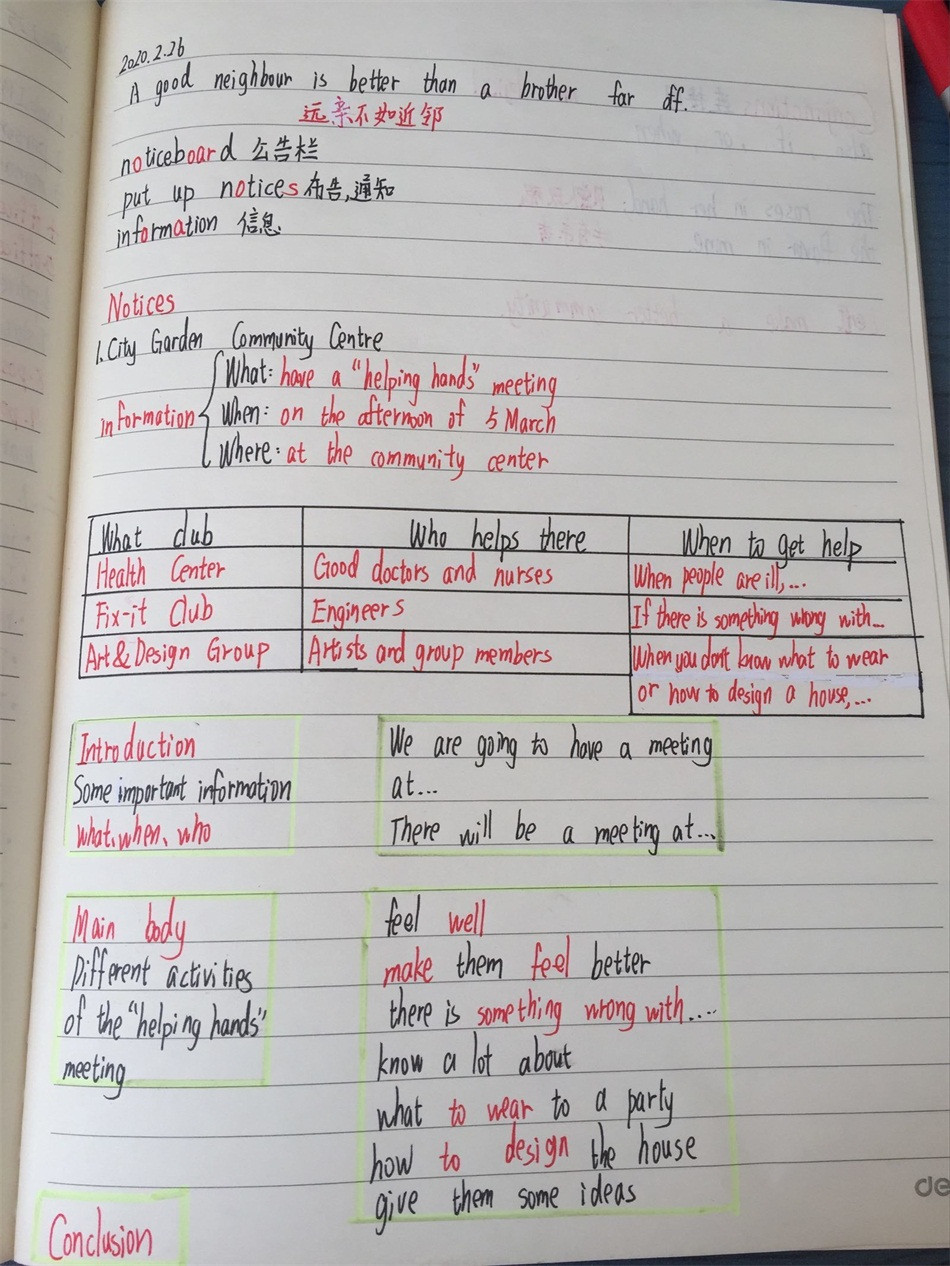 2020.2.26
A good neighbour is better than a brother far off.
远亲不如近邻
noticeboard 公告栏
put up notices 布告,通知
information 信息
Notices
1. City Garden Community Centre
information
What: have a "helping hands" meeting
When: on the afternoon of 5 March
Where: at the community center
What club Who helps there When to get help
Health Center Good doctors and nurses When people are ill,...
Fix-it Club Engineers If there is something wrong with...
Art & Design Group Artists and group members When you don't know what to wear
or how to design a house,...
Introduction
Some important information
what、when、who
We are going to have a meeting
at...
There will be a meeting at...
Main body
Different activities
of the "helping hands"
meeting
feel well
make them feel better
there is something wrong with....
know a lot about
what to wear to a party
how to design the house
give them some ideas
Conclusion
de